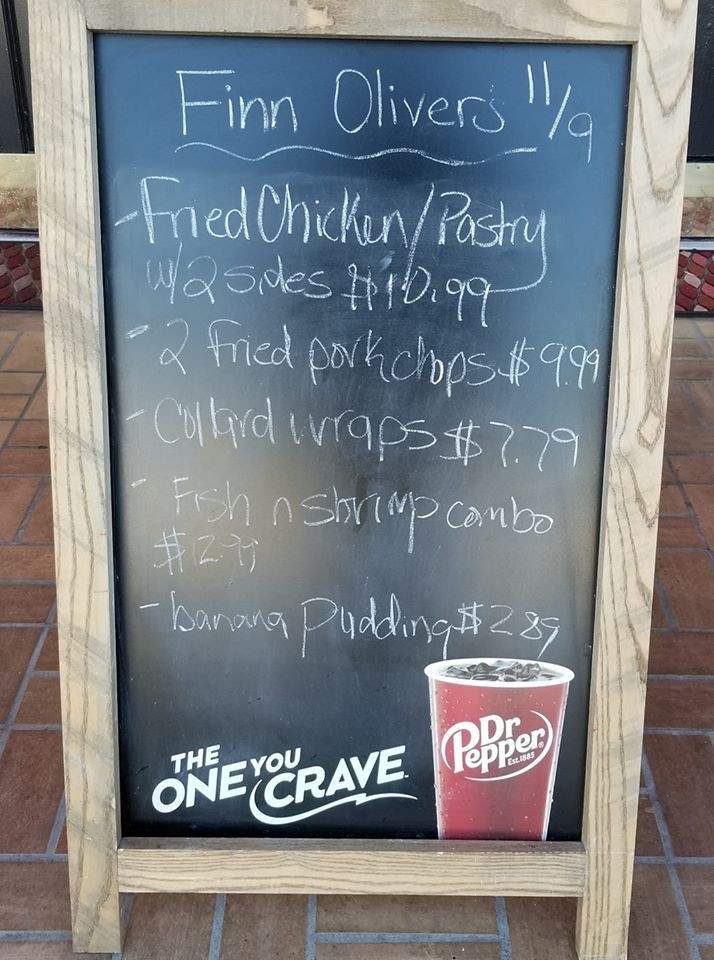 Finn Olivers 11/9
-Fried Chicken/Pastry
w/2 sides $10.99
- 2 Fried porkchops $9.99
- Collard wraps $7.79
- Fish n shrimp combo
$12.99
- banana pudding $2.89
THE ONE YOU CRAVE
Dr Pepper
Est. 1885